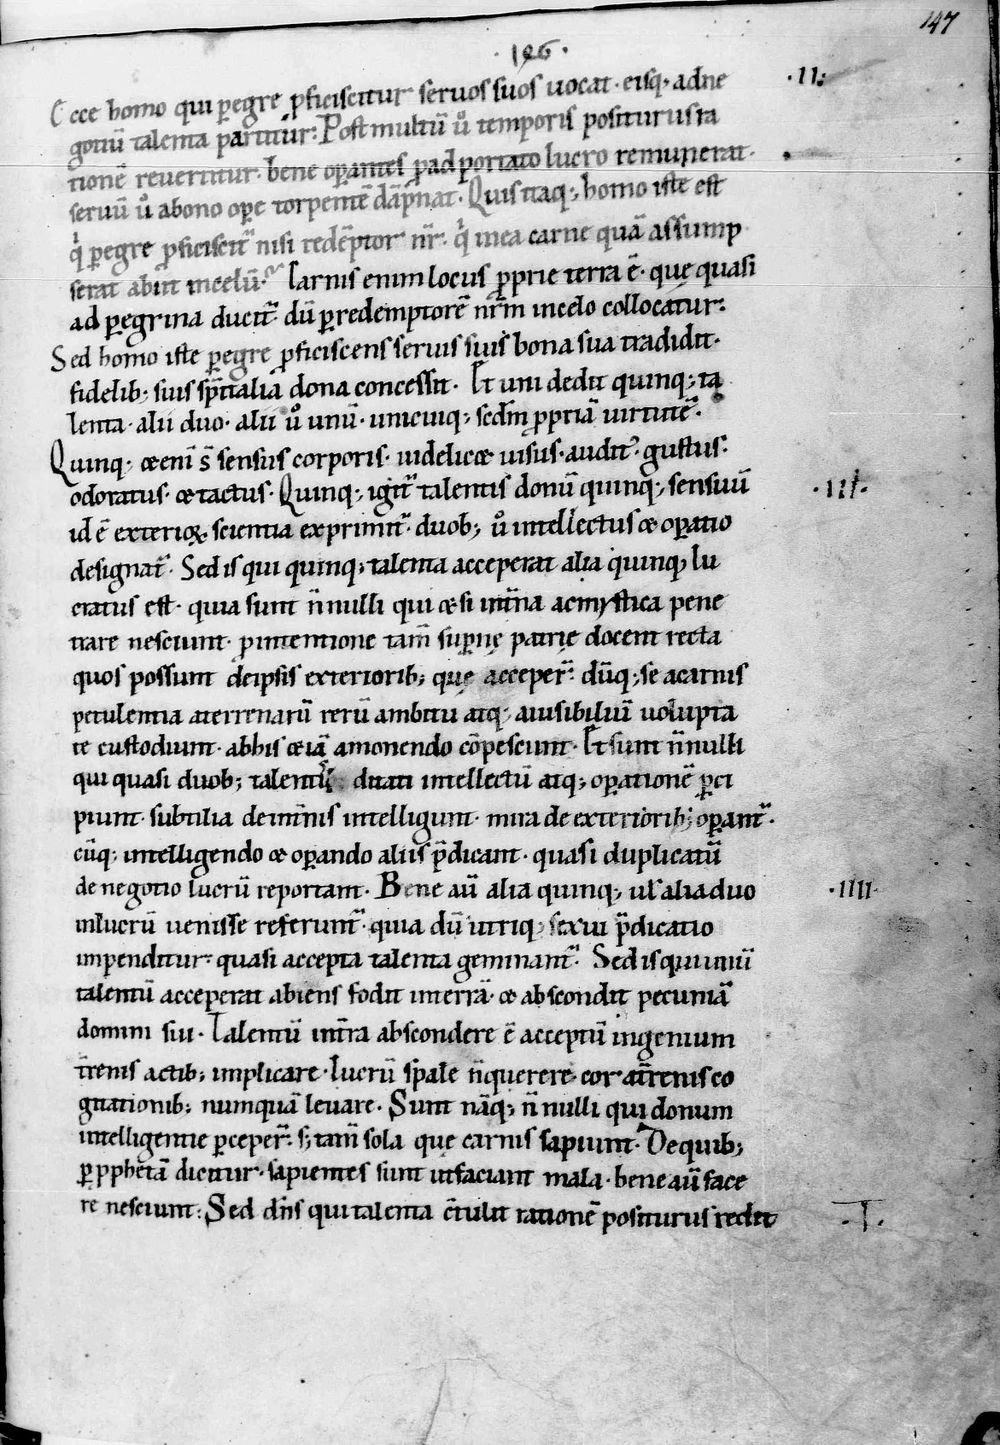 147
·126·
Ecce homo qui ꝑegre ꝓficiscitur seruos suos uocat· eisq;· adne ·II:
gotiū talenta partitur: Post multū uͦ temporis positurus ra
tionē reuertitur· bene oꝑantes ꝓ adportato lucro remunerat·
seruū uͦ abono oꝑe torpentē dāpnat· Quis itaq;, homo iste est
qͥ ꝑegre ꝓficiscit᷑ nisi redēptor nr̄· qͥ inea carne quā assump
serat abiit incelū· Carnis enim locus ꝓprie terra ē· quę quasi
ad ꝑegrina ducit᷑ dū ꝑ redemptorē nr̄m incelo collocatur:
Sed homo iste ꝑegre ꝓficiscens seruis suis bona sua tradidit·
fidelib; suis sp̄italia dona concessit· Et uni dedit quinq; ta
lenta· alii duo· alii uͦ unū· unicuiq; sedm̄ ꝓpriā uirtutē·
Quinq; etenī s̄ sensus corporis· uidelicet uisus· audit᷒· gustus:
odoratus· et tactus· Quinq; igit᷑ talentis donū quinq; sensuū ·III·
id ē exterioꝝ scientia exprimit᷑· duob; uͦ intellectus et oꝑatio
designat᷑· Sed is qui quinq; talenta acceperat alia quinq; lu
cratus est· quia sunt n̄nulli qui etsi int̄na ac mystica pene
trare nesciunt· ꝓ intentione tam̄ suꝑnę patrię docent recta
quos possunt deipsis exteriorib; quę acceper̄· dūq; se acarnis
petulentia aterrenarū rerū ambitu atq; auisibiliū uolupta
te custodiunt· abhis etiā amonendo cōpescunt· Et sunt n̄nulli
qui quasi duob; talentis ditati intellectū atq; oꝑationē ꝑci
piunt· subtilia deint̄nis intelligunt· mira de exteriorib; oꝑant᷑·
cūq; intelligendo et oꝑando aliis p̄dicant· quasi duplicatū
de negotio lucrū reportant· Bene aū alia quinq; ul' alia duo ·IIII·
inlucrū uenisse referunt᷑· quia dū utriq; sexui p̄dicatio
inpenditur· quasi accepta talenta geminant᷑· Sed is qui unū
talentū acceperat abiens fodit interrā· et abscondit pecuniā
domini sui· Talentū int̄ra abscondere ē acceptū ingenium
t̄renis actib; implicare· lucrū sp̄ale n̄querere· cor at̄renis co
gitationib; numquā leuare· Sunt nāq; n̄nulli qui donum
intelligentie ꝑceper̄· s; tam̄ sola que carnis sapiunt· De quib;
ꝑ ꝓphetā dicitur· sapientes sunt utfaciant mala· bene aū face
re nesciunt: Sed dn̄s qui talenta ɔ̄tulit rationē positurus redit ·I·